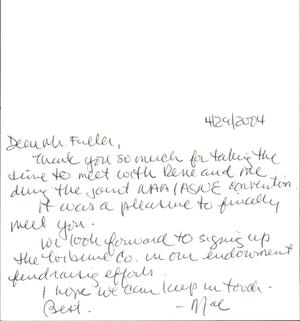 4/29/2004
Dear Mr. Fuller,
Thank you so much for taking the
time to meet with René and me
during the joint NAA/ASNE convention.
It was a pleasure to finally
meet you.
We look forward to signing up
the Tribune Co. in our endowment
fundraising efforts.
I hope we can keep in touch.
Best. - Mae